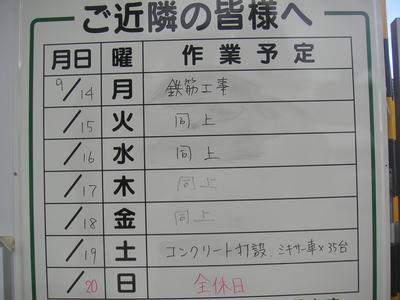 ご近隣の皆様へ
月日 曜 作業予定
9/14 月 鉄筋工事
/15 火 同上
/16 水 同上
/17 木 同上
/18 金 同上
/19 土 コンクリート打設、ミキサー車×35台
/20 日 全休日